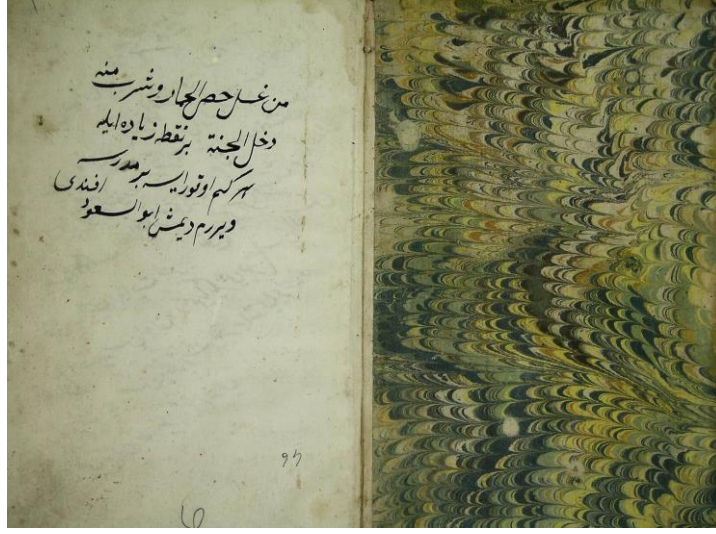 من غسل حصى الجمار وشرب منه
دخل الجنة بر نقطه زياده ايله
هر كيم اوقورايسه بر مدرسه
ويررم ديمش ابو السعود افندى